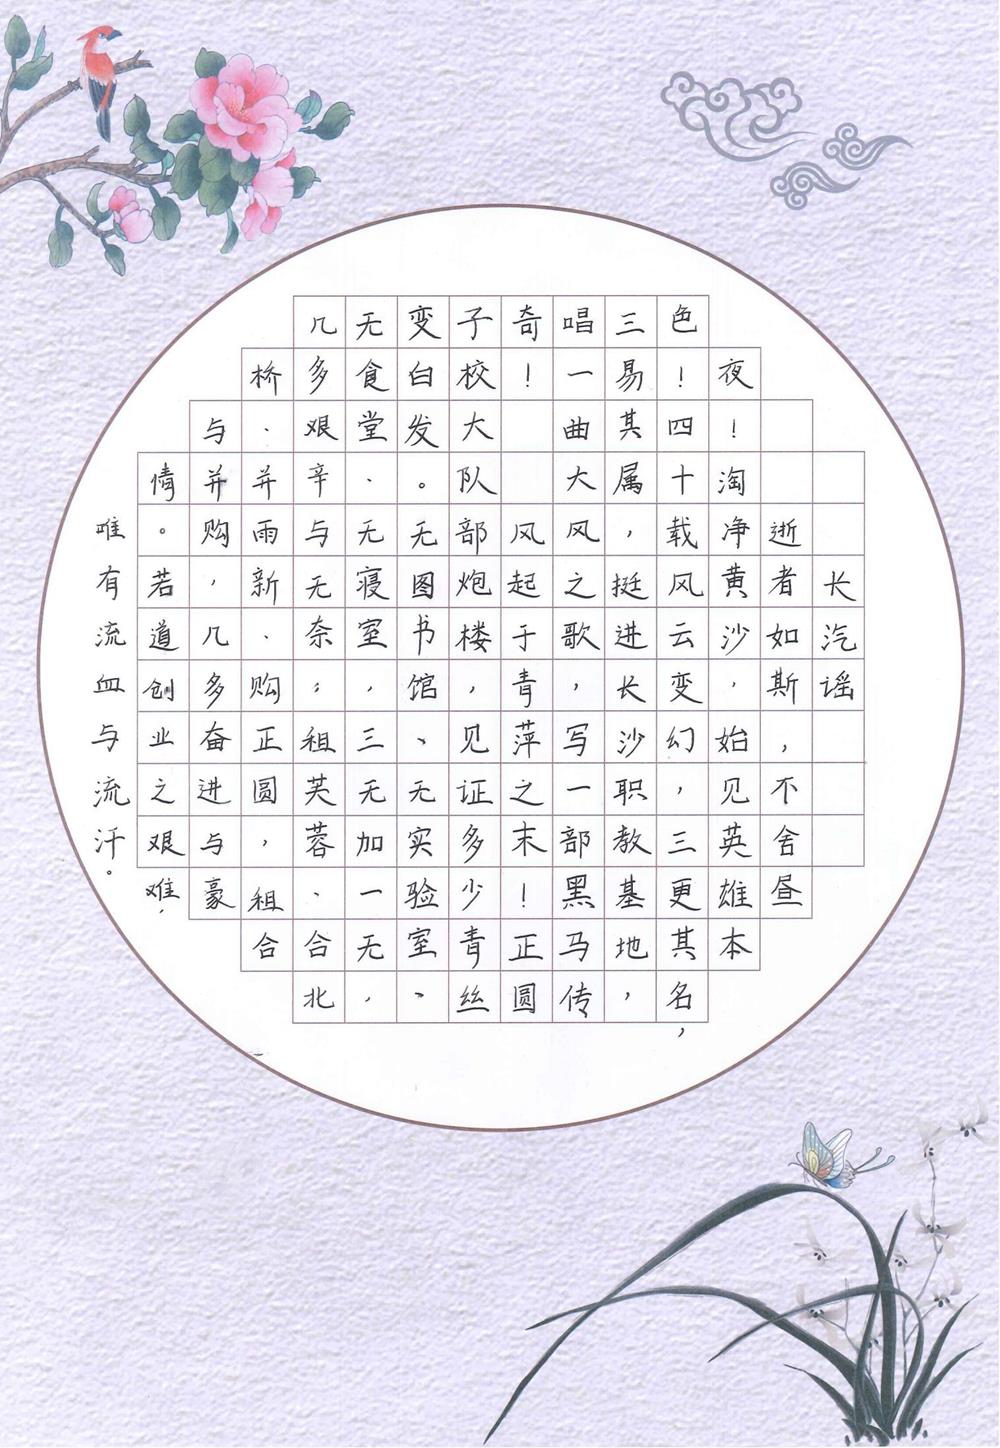 长汽谣
逝者如斯,不舍昼
夜!淘净黄沙,始见英雄本
色!四十载风云变幻,三更其名,
三易其属,挺进长沙职教基地,
一曲大风之歌,写一部黑马传
奇!风起于青萍之末!正圆
子校大队部炮楼,见证多少青丝
变白发。无图书馆、无实验室、
无食堂、无寝室,三无加一无,
几多艰辛与无奈;租芙蓉、合北
桥、并雨新、购正圆,租合
与并购,几多奋进与豪
情。若道创业之艰难,
唯有流血与流汗。